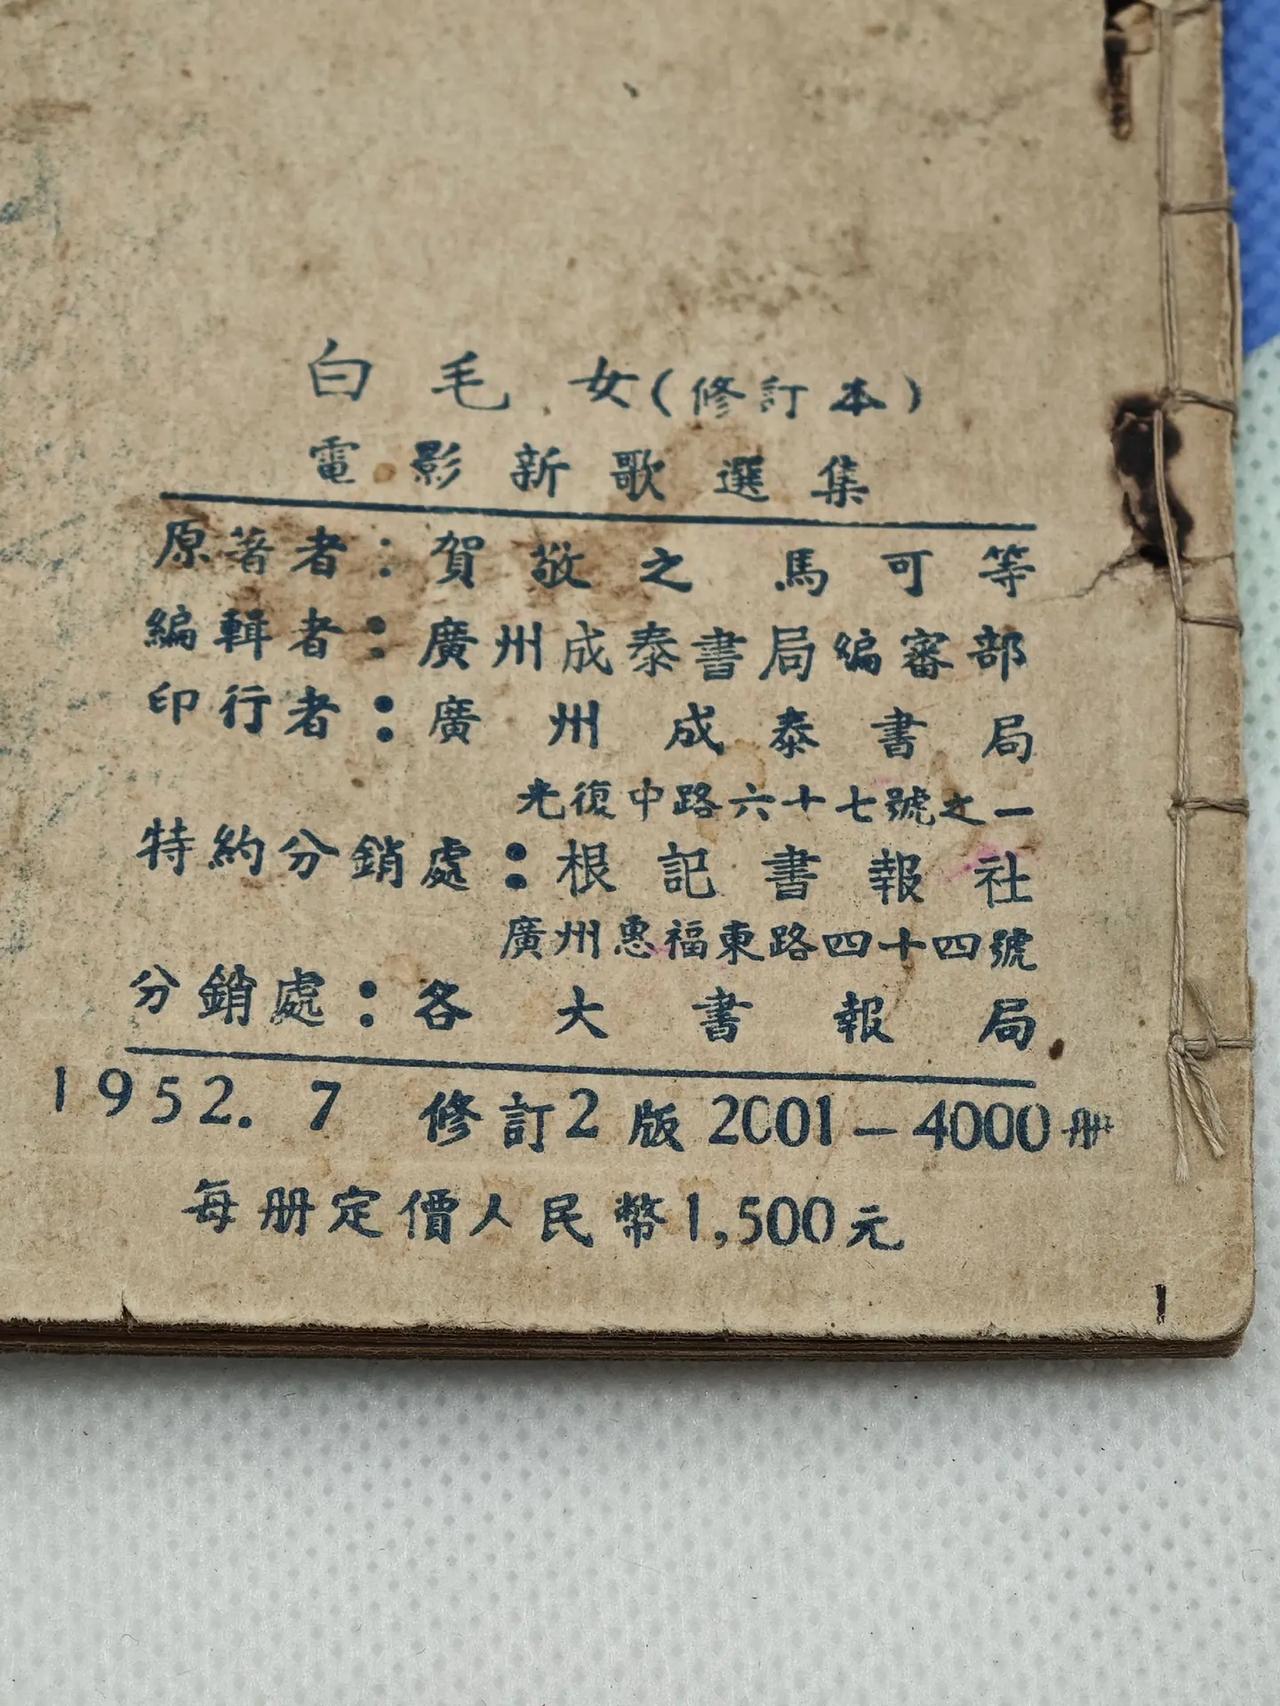 白毛女(修訂本)
電影新歌選集
原著者:賀敬之 馬可等
編輯者:廣州成泰書局編審部
印行者:廣州成泰書局
光復中路六十七號之一
特約分銷處:根記書報社
廣州惠福東路四十四號
分銷處:各大書報局
1952.7 修訂2版 2001-4000册
每册定價人民幣1,500元